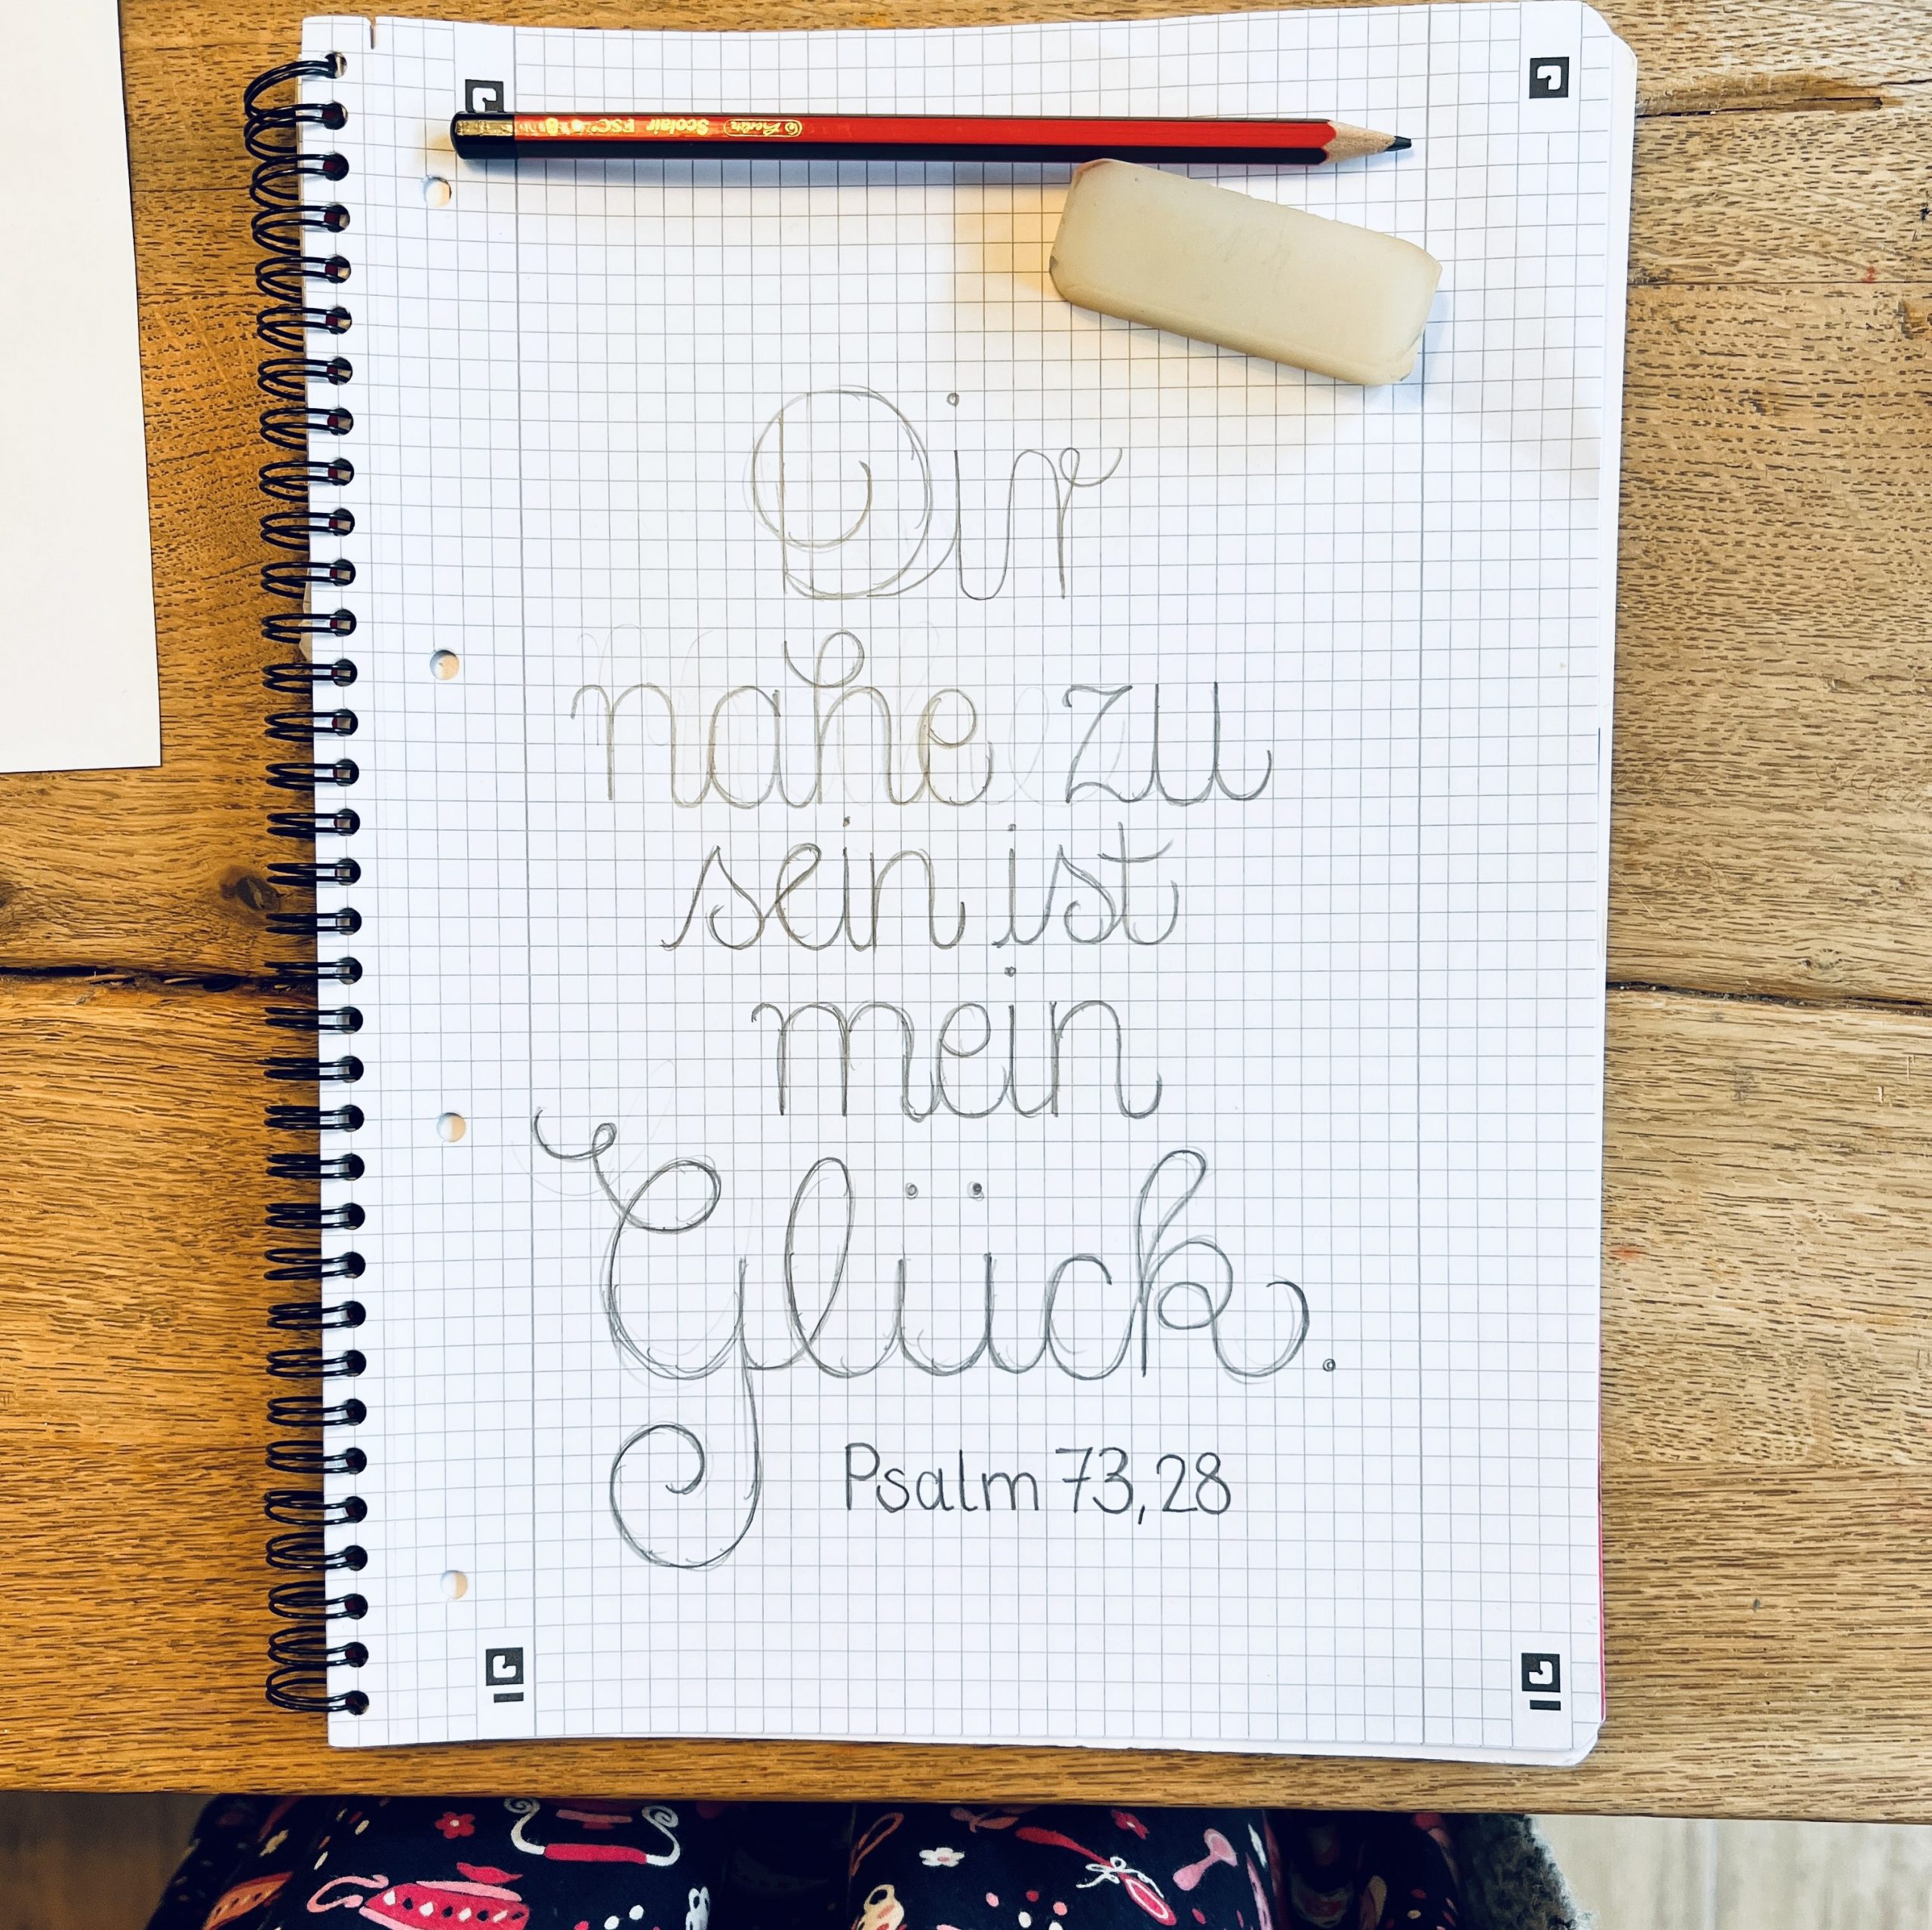 Scolair FSC
Dir
nahe zu
sein ist
mein
Glück.
Psalm 73,28